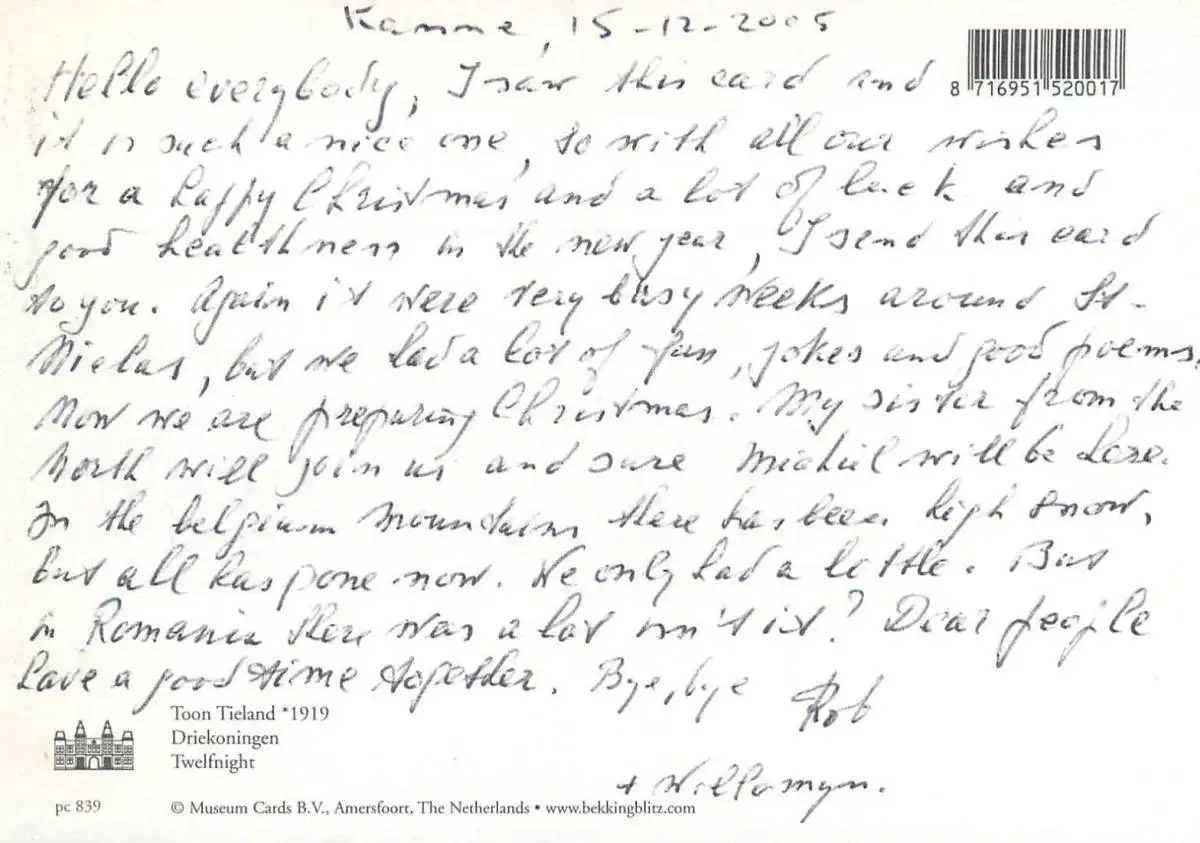 Kanne, 15-12-2005
8 716951 520017
Hello everybody, I saw this card and
it is such a nice one, so with all our wishes
for a happy Christmas and a lot of luck and
good healthness in the new year, I send this card
to you. Again it were very busy weeks around St-
Niclas, but we had a lot of fun, jokes and good poems.
Now we are preparing Christmas. My sister from the
North will join us and sure Michiel will be here.
In the belgium mountains there has been high snow,
but all has gone now. We only had a little. But
in Romania there was a lot isn't it? Dear people
have a good time together. Bye, bye Rob
+ Willemyn.
Toon Tieland *1919
Driekoningen
Twelfnight
pc 839
© Museum Cards B.V., Amersfoort, The Netherlands • www.bekkingblitz.com